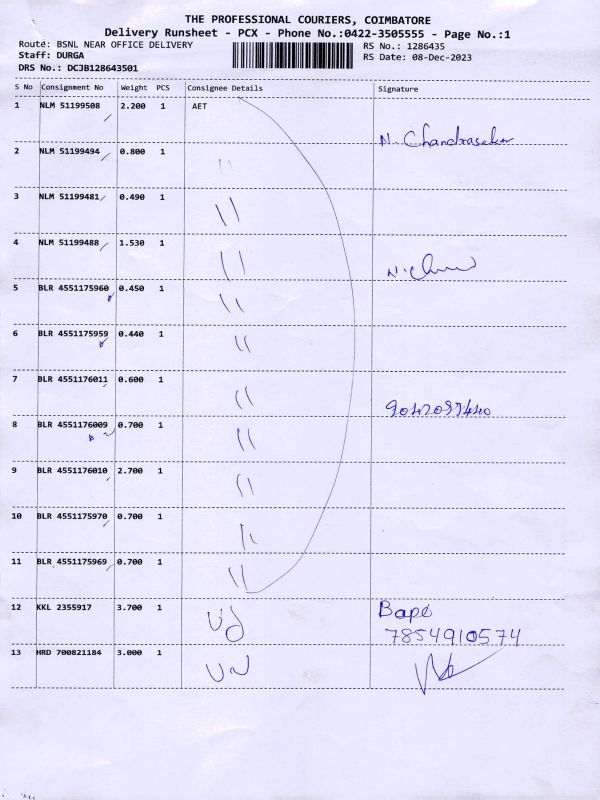 THE PROFESSIONAL COURIERS, COIMBATORE
Delivery Runsheet - PCX - Phone No.:0422-3505555 - Page No.:1
Route: BSNL NEAR OFFICE DELIVERY
RS No.: 1286435
Staff: DURGA
RS Date: 08-Dec-2023
DRS No.: DCJB128643501
S No Consignment No Weight PCS Consignee Details Signature
1 NLM 51199508 2.200 1 AET
N. Chandrasekar
2 NLM 51199494 0.800 1 "
3 NLM 51199481 0.490 1 "
4 NLM 51199488 1.530 1 "
5 BLR 4551175960 0.450 1 "
6 BLR 4551175959 0.440 1 "
7 BLR 4551176011 0.600 1 "
8 BLR 4551176009 0.700 1 "
9 BLR 4551176010 2.700 1 "
10 BLR 4551175970 0.700 1 "
11 BLR 4551175969 0.700 1 "
12 KKL 2355917 3.700 1 Bapi
7854910574
13 HRD 700821184 3.000 1